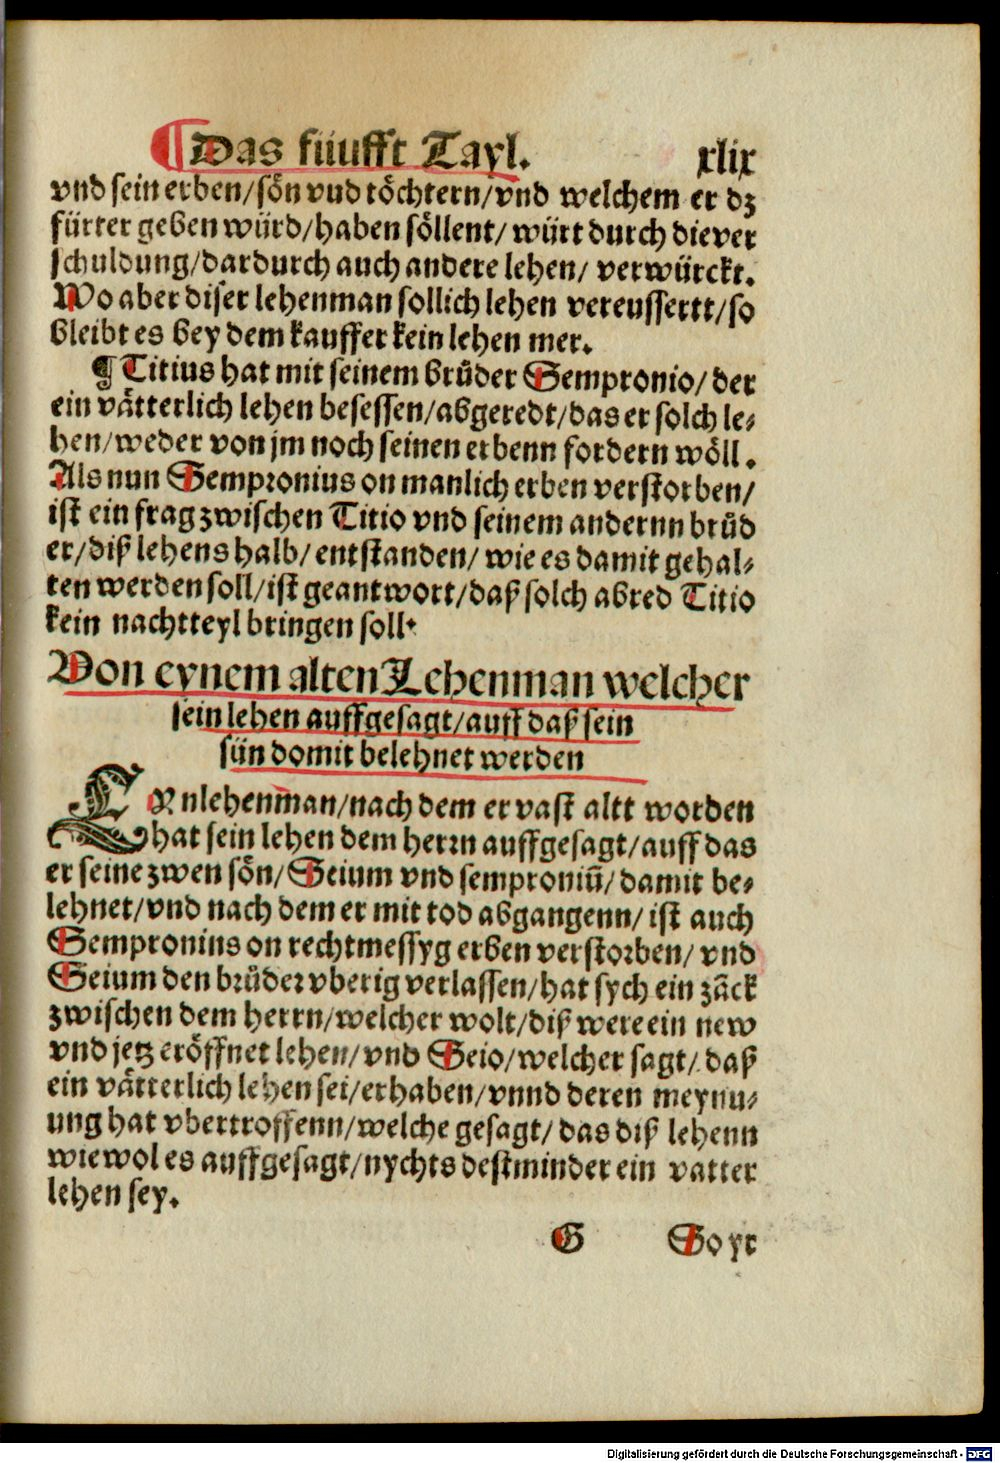 ¶ Das füufft Tayl. xlix
vnd sein erben/sön vud töchtern/vnd welchem er dz
fürter geben würd/haben söllent/ würt durch die ver
schuldung/dardurch auch andere lehen/ verwürckt.
Wo aber diser lehenman sollich lehen vereussertt/so
bleibt es bey dem kauffer kein lehen mer.
¶ Titius hat mit seinem brůder Sempronio/ der
ein vätterlich lehen besessen/abgeredt/das er solch le⸗
hen/weder von jm noch seinen erbenn fordern wöll.
Als nun Sempronius on manlich erben verstorben/
ist ein frag zwischen Titio vnd seinem andernn brůd
er/diß lehens halb/entstanden/ wie es damit gehal⸗
ten werden soll/ist geantwort/daß solch abred Titio
kein nachtteyl bringen soll.
Von eynem alten Lehenman welcher
sein lehen auffgesagt/auff daß sein
sün domit belehnet werden
EYn lehenman/nach dem er vast altt worden
hat sein lehen dem herrn auffgesagt/auff das
er seine zwen sön/Seium vnd semproniū/damit be⸗
lehnet/vnd nach dem er mit tod abgangenn/ist auch
Sempronius on rechtmessyg erben verstorben/ vnd
Seium den brůder vberig verlassen/hat sych ein zäck
zwischen dem herrn/welcher wolt/diß were ein new
vnd jetz eröffnet lehen/vnd Seio/welcher sagt/ daß
ein vätterlich lehen sei/erhaben/vnnd deren meynu⸗
ung hat vbertroffenn/welche gesagt/ das diß lehenn
wiewol es auffgesagt/nychts destminder ein vatter
lehen sey.
G So yr
Digitalisierung gefördert durch die Deutsche Forschungsgemeinschaft - DFG